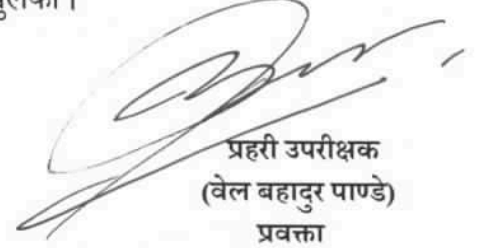 प्रहरी उपरीक्षक
(वेल बहादुर पाण्डे)
प्रवक्ता